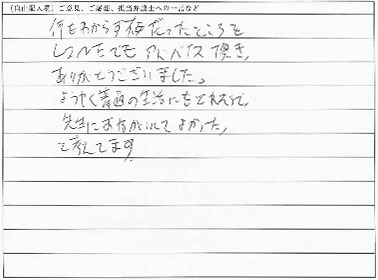 (自由記入欄) ご意見、ご感想、担当弁護士への一言など
何もわからず だったところを
でもアドバイス頂き、
ありがとうございました。
ようやく普通の生活にもどれそうで、
先生におねがいしてよかった、
と考えてます